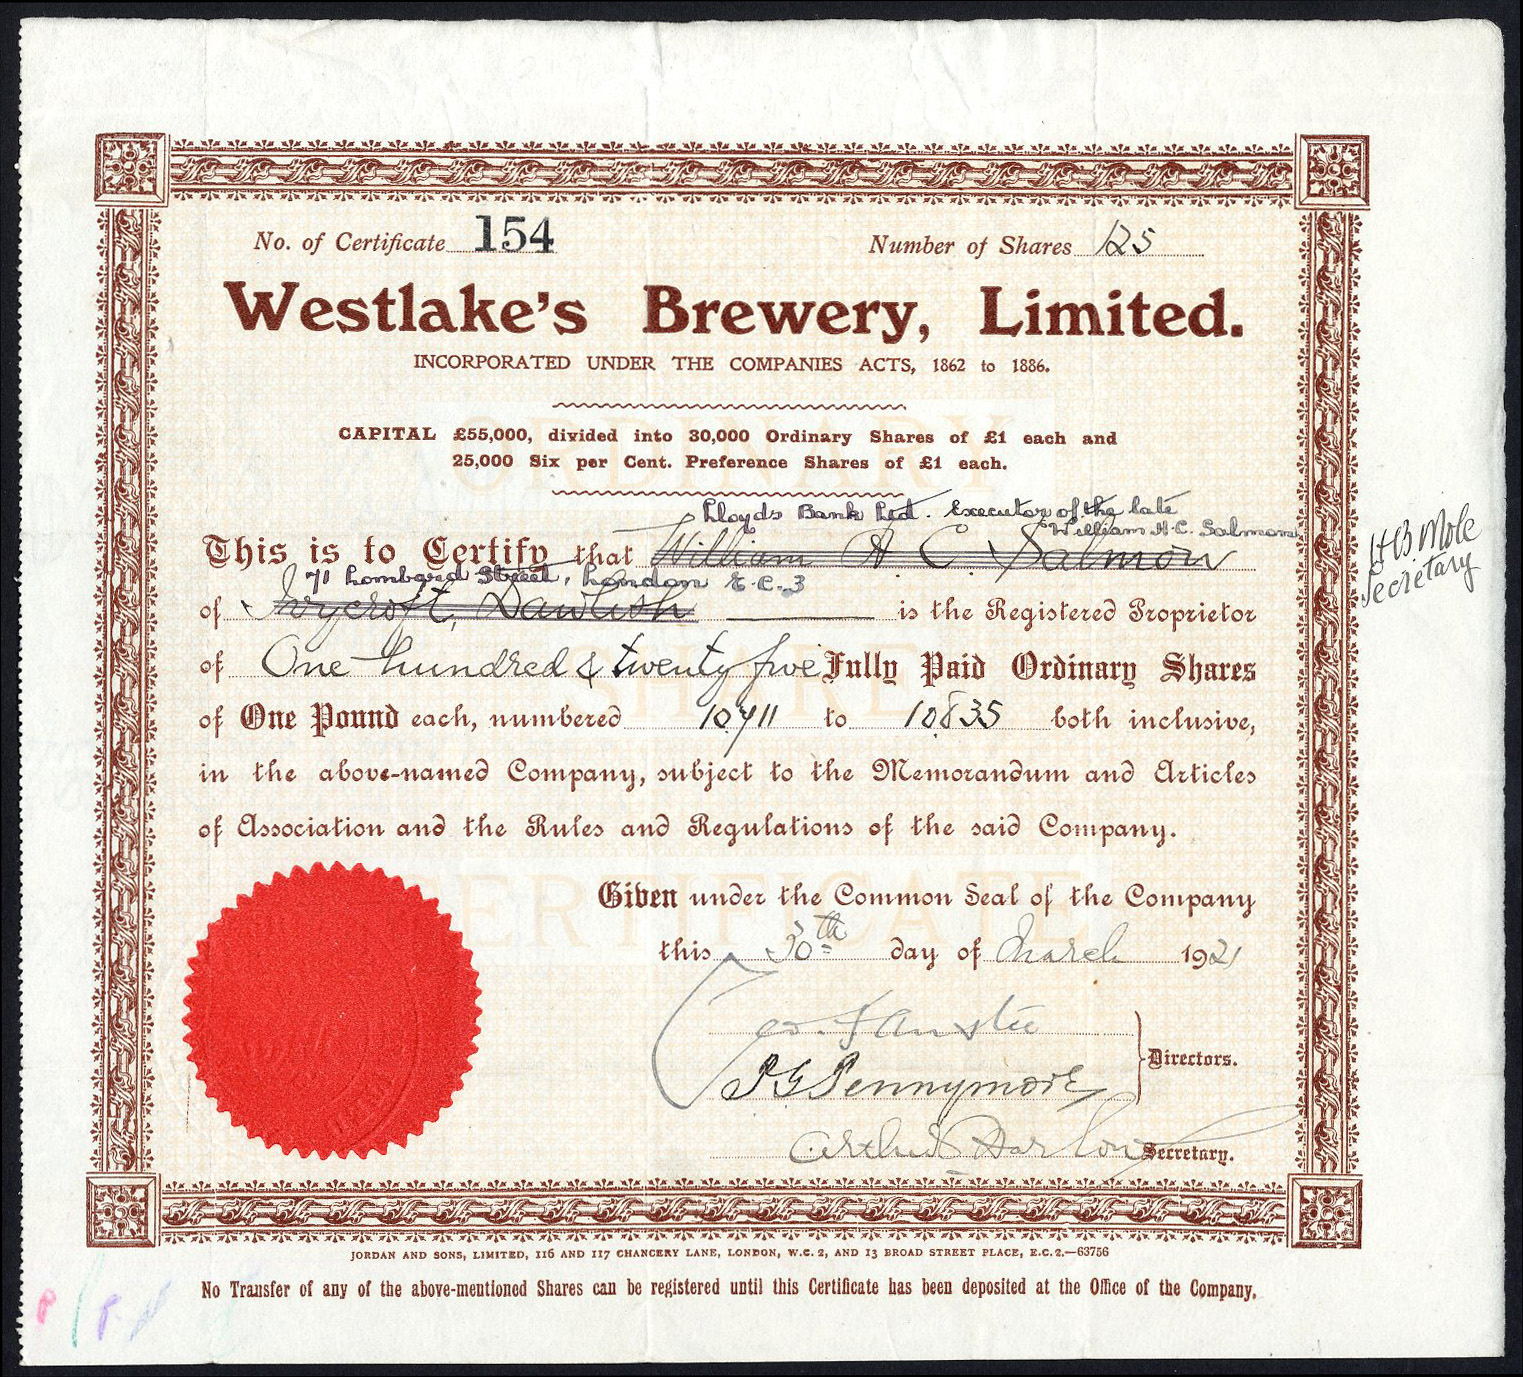 No. of Certificate 154
Number of Shares 125
Westlake's Brewery, Limited.
INCORPORATED UNDER THE COMPANIES ACTS, 1862 to 1886.
ORDINARY
CAPITAL £55,000, divided into 30,000 Ordinary Shares of £1 each and
25,000 Six per Cent. Preference Shares of £1 each.
Lloyds Bank Ltd. Executor of the late
William H. C. Salmon
This is to Certify that William H C Salmon
H B Mole
Secretary
71 Lombard Street, London E.C.3
of Ivycroft, Dawlish is the Registered Proprietor
SHARE
of One hundred & twenty five Fully Paid Ordinary Shares
of One Pound each, numbered 10711 to 10835 both inclusive,
in the above-named Company, subject to the Memorandum and Articles
of Association and the Rules and Regulations of the said Company.
CERTIFICATE
Given under the Common Seal of the Company
this 30th day of March 1921
Directors.
P G Pennymore
Arthur Harlow Secretary.
JORDAN AND SONS, LIMITED, 116 AND 117 CHANCERY LANE, LONDON, W.C. 2, AND 13 BROAD STREET PLACE, E.C. 2.—63756
No Transfer of any of the above-mentioned Shares can be registered until this Certificate has been deposited at the Office of the Company.